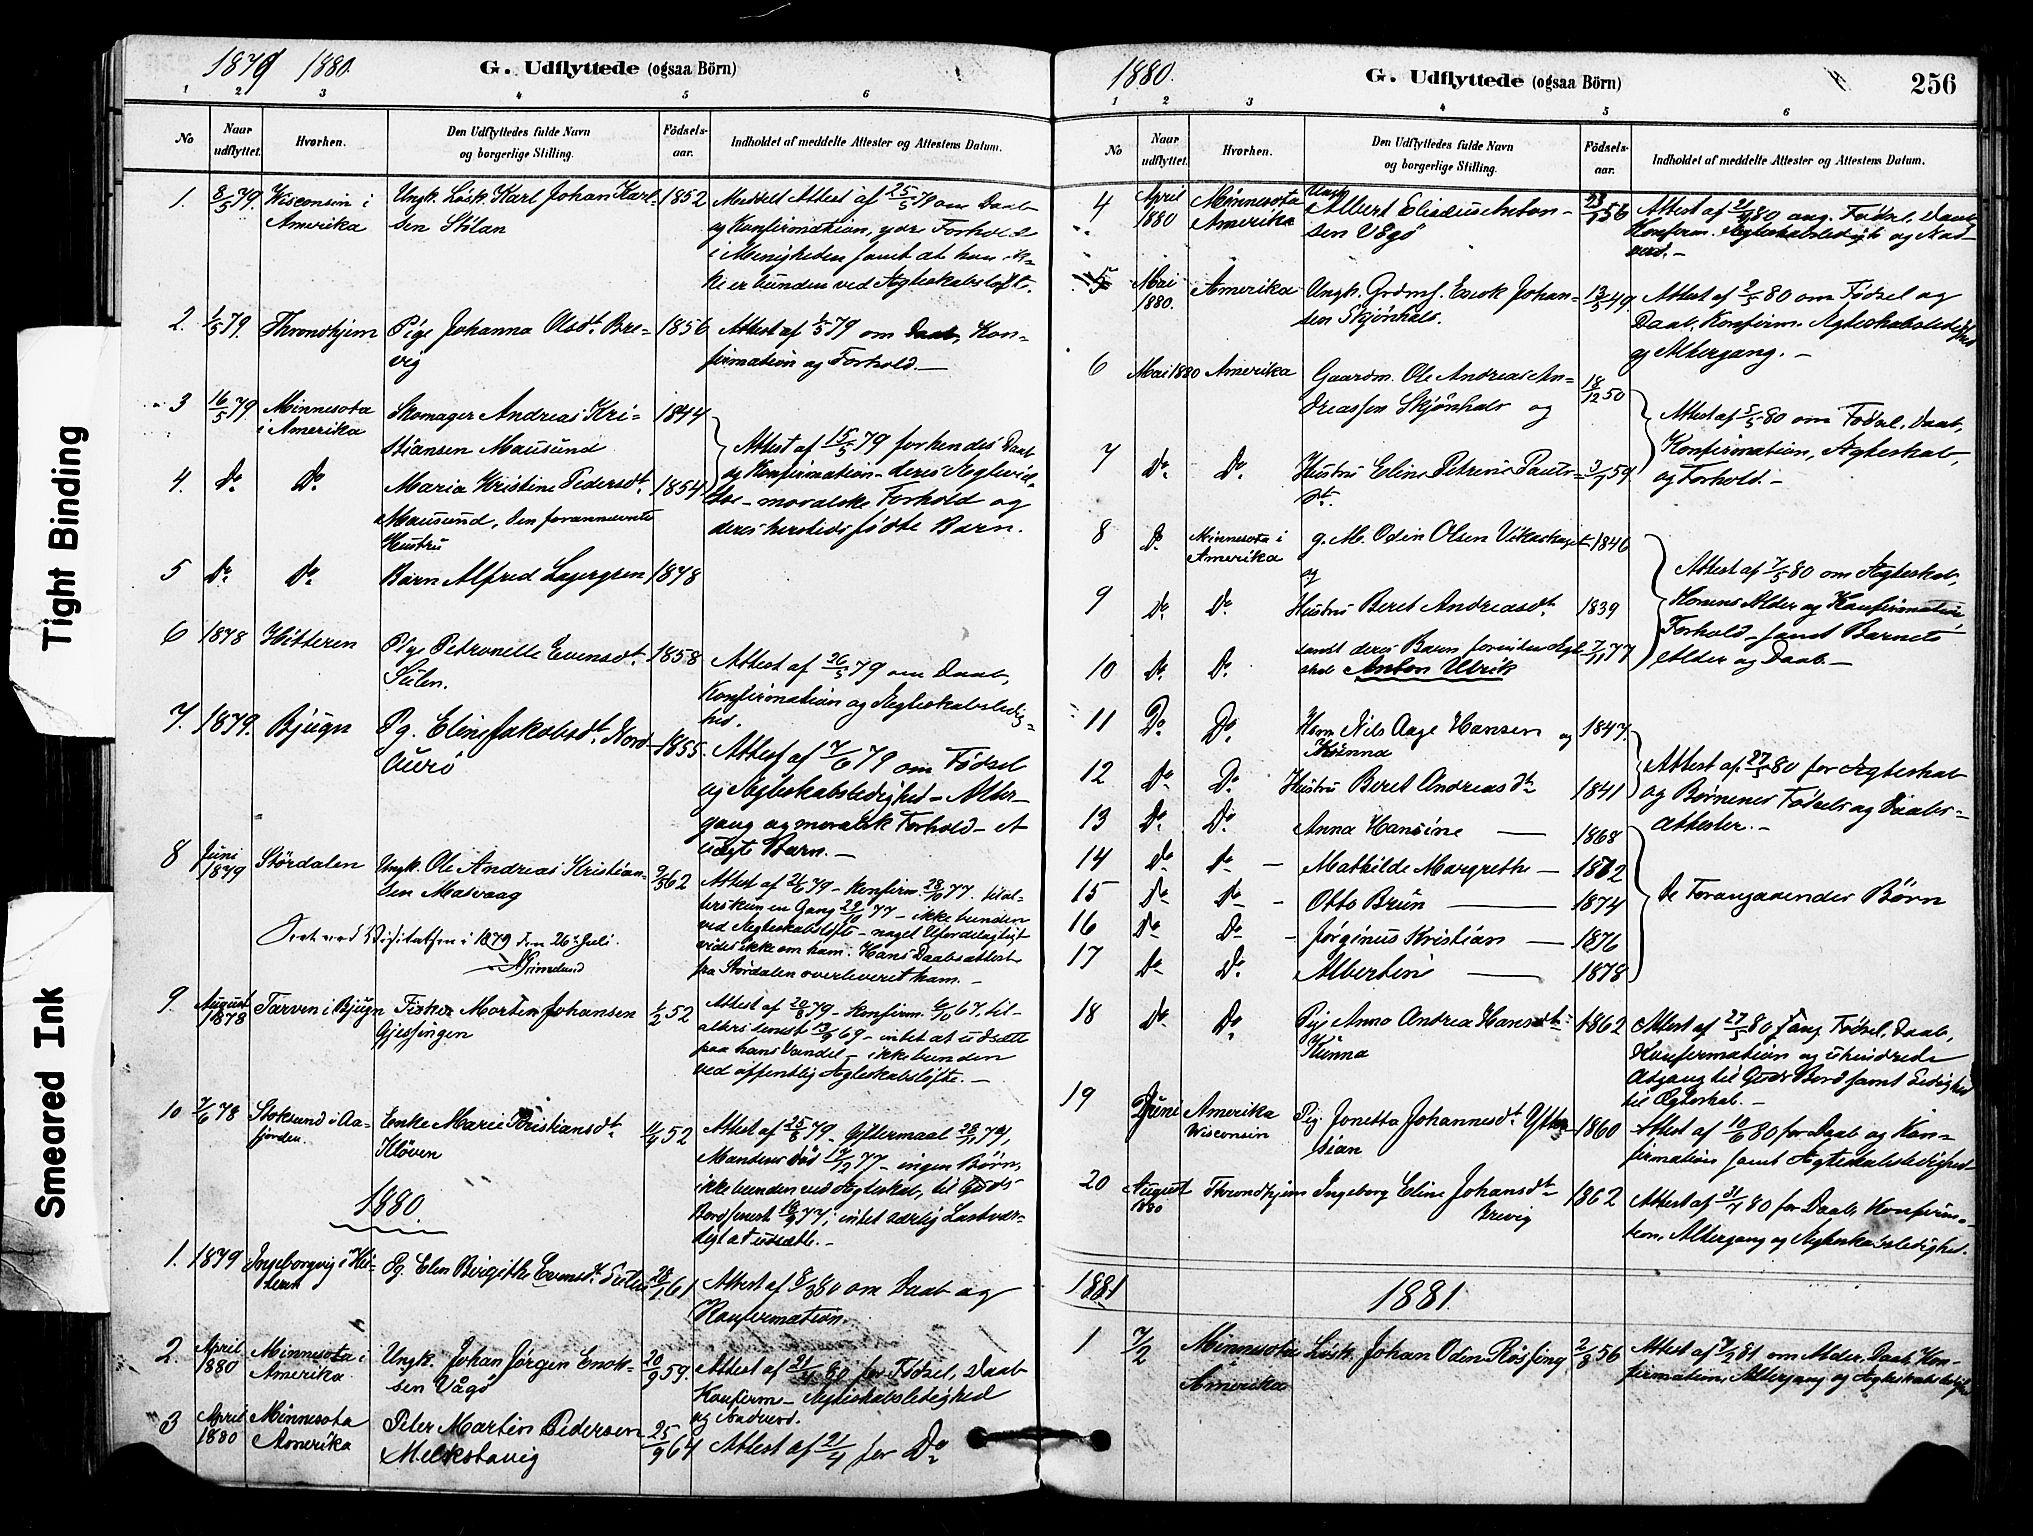 Tight Binding
Smeared Ink
1879 1880.
G. Udflyttede (ogsaa Börn)
1 2 3 4 5 6
No
Naar udflyttet.
Hvorhen.
Den Udflyttedes fulde Navn og borgerlige Stilling.
Födsels-aar.
Indholdet af meddelte Attester og Attestens Datum.
1. 8/5 79. Wisconsin i Ungk. Løsk. Karl Johan Karl- 1852 Meddelt Attest af 25/5 79 om Daab
Amerika sen Stølan og Konfirmation, god Forhold
i Menigheden samt at han ik-
ke er bunden ved Ægteskabsløfte.
2. 1/5 79. Throndhjem Pige Johanna Olsdt. Bre- 1856 Attest af 1/5 79 om Daab, Kon-
vig firmation og Forhold.—
3 16/5 79 Minnesota Skomager Andreas Kri- 1844
i Amerika stiansen Mausund Attest af 15/5 79 for hendes Daab
og Konfirmation - deres Ægtevid-
4. Do Do Maria Kristine Pedersdt. 1854 moralske Forhold og
Mausund, den forannævntes deres hersteds fødte Barn.
Hustru
5 Do Do Barn Alfred Lagergren 1878
6 1878 Hitteren Pige Petronelle Evensdt. 1858 Attest af 26/5 79 om Daab,
Sulen. Konfirmation og Ægteskabsledig-
hed.
7. 1879. Bjugn Pg. Eline Jakobsdt. Nord- 1855. Attest af 7/6 79 om Fødsel
og Ægteskabsledighed - Alter-
gang og moralsk Forhold - et
uægte Barn.—
8 Juni 1879 Stördalen Ungk. Ole Andreas Kristian- 62 Attest af 79 - Konfirm. 77.
sen Masvaag en Gang 77 - ikke bunden
ved Ægteskabsløfte - noget Ufordelagtigt
Seet ved Visitatsen i 1879 den 26de Juli. vides ikke om ham. Hans Daabsattest
Grimelund fra Stördalen overleveret ham.—
9. August 1878 Tarven i Bjugn Fisker Morten Johansen 1/2 52 Attest af 20/8 79 - Konfirm. 67, til-
Gjessingen alters senest 69 - intet at udsætte
paa hans Vandel - ikke bunden
ved offentlig Ægteskabsløfte.—
10 7/6 78 Stoksund i Aa- Enke Marie Kristiansdt. 52 Attest af 25/8 79 - Giftermaal
fjorden. Kløven Mandens Død 77 - ingen Börn,
ikke bunden ved Ægteskab, til Guds
1880 Bord senest 77, intet særlig Lastvær-
digt at udsætte.—
1. 1879 Ingeborgvig i Hit- Pg. Elen Birgithe Evensdt. Sulen 61 Attest af 8/3 80 om Daab og
teren Konfirmation.
2. April 1880 Minnesota i Ungk. Johan Jörgen Enok- 20/9 59. Attest af 21/4 80 for Fødsel, Daab
Amerika. sen Vågö Konfirm - Ægteskabsledighed
og Nadverd.
3 April 1880 Minnesota Peter Martin Pedersen 25/9 64 Attest af 21/4 for Do
Amerika Melkstavig
1880.
G. Udflyttede (ogsaa Börn)
256
1 2 3 4 5 6
No
Naar udflyttet.
Hvorhen.
Den Udflyttedes fulde Navn og borgerlige Stilling.
Födsels-aar.
Indholdet af meddelte Attester og Attestens Datum.
4 April 1880 Minnesota Ungk. Albert Elisæus Anton- 56 Attest af 80 ang. Fødsel, Daab
Amerika sen Vågö Konfirm. Ægteskabsledigh og Nad-
verd.—
5 Mai 1880. Amerika Ungk. Grdms. Enok Johan- 13/5 49. Attest af 2/5 80 om Fødsel og
sen Skjønhals. Daab, Konfirm. Ægteskabsledighed
og Altergang.—
6 Mai 1880 Amerika Gaardm. Ole Andreas An- 18/12 50
dreassen Skjønhals og Attest af 5/5 80 om Fødsel, Daab,
Konfirmation, Ægteskab,
7 Do Do Hustru Eline Petrine Pauls- 59 og Forhold.—
dt.
8 Do Minnesota i g. M. Odin Olsen Vikaskaget 1846
Amerika og Attest af 7/5 80 om Ægteskab,
9 Do Do Hustru Beret Andreasdt. 1839 Konens Alder og Konfirmation
samt deres Barn forinden Ægte- Forhold - samt Barnets
10 Do Do skab Anton Ulrik 77 Alder og Daab.—
11 Do Do Hsm. Nils Aage Hansen og 1847.
Kunna Attest af 27/5 80 for Ægteskab
12 Do Do Hustru Beret Andreasdt 1841 og Børnenes Fødsels og Daabs-
attester.—
13 Do Do Anna Hansine — 1868
14 do do — Mathilde Margrethe — 1872
15 Do Do - Otto Brun — 1874 De Foregaaendes Børn
16 Do Do - Jørginus Kristian — 1876
17 Do Do Albertine — 1878
18 Do Do Pige Anna Andrea Hansdt. 1862 Attest af 27/5 80 ang Fødsel, Daab,
Kunna Konfirmation og uhindrede
Adgang til Guds Bord samt Ledighed
til Ægteskab.—
19 Juni Amerika Pige Jonetta Johannesdt. Ytter- 1860 Attest af 10/6 80 for Daab og Kon-
Wisconsin sian firmation samt Ægteskabsledighed
20 August 1880 Throndhjem Ingeborg Eline Johansdt 1862 Attest af 31/7 80 for Daab, Konfirma-
Brevig tion, Altergang og Ægteskabsledighed.
1881 1881.
1 7/2 Minnesota Løsk. Johan Odin Røsfing 2/8 56 Attest af 7/2 81 om Alder, Daab, Kon-
Amerika firmation, Altergang og Ægteskabsledighed